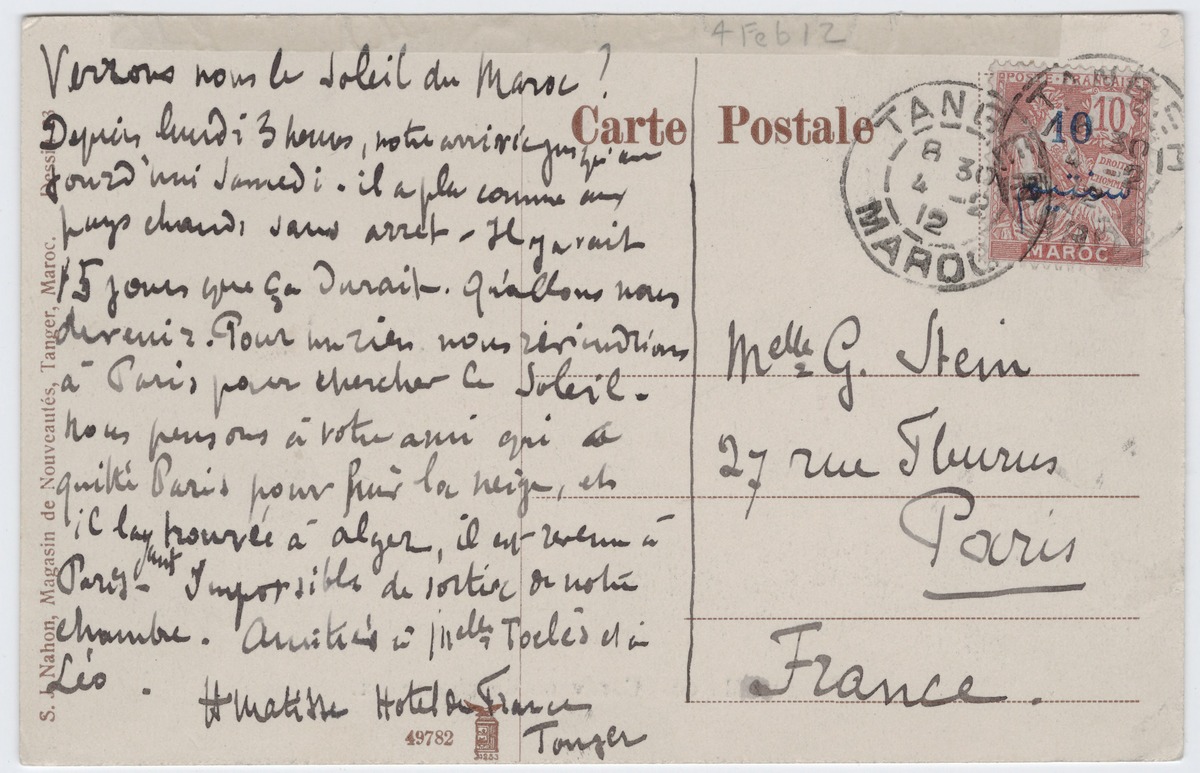 4 Feb 12
Verrons nous le Soleil du Maroc ?
Depuis lundi 3 heures, notre arrivée jusqu'au
jourd'hui Samedi. il a plu comme aux
pays chauds sans arret - Il y avait
15 jours que ça durait. Qu'allons nous
devenir. Pour un rien nous reviendrions
à Paris pour chercher le Soleil.
nous pensons à votre ami qui a
quitté Paris pour fuir la neige, et
il l'ayant trouvée à alger, il est revenu à
Paris - Impossible de sortir de notre
chambre. Amitiés à Melle Toclès et à
Léo.
H Matisse Hotel de France
Tanger
Carte Postale
Melle G. Stein
27 rue Fleurus
Paris
France.
POSTE FRANÇAISE
10
10
DROITS
HOMME
MAROC
سنتيم
TANG
8 30
4 -2
12
MAROC
30
49782
S. J. Nahon, Magasin de Nouveautés, Tanger, Maroc.